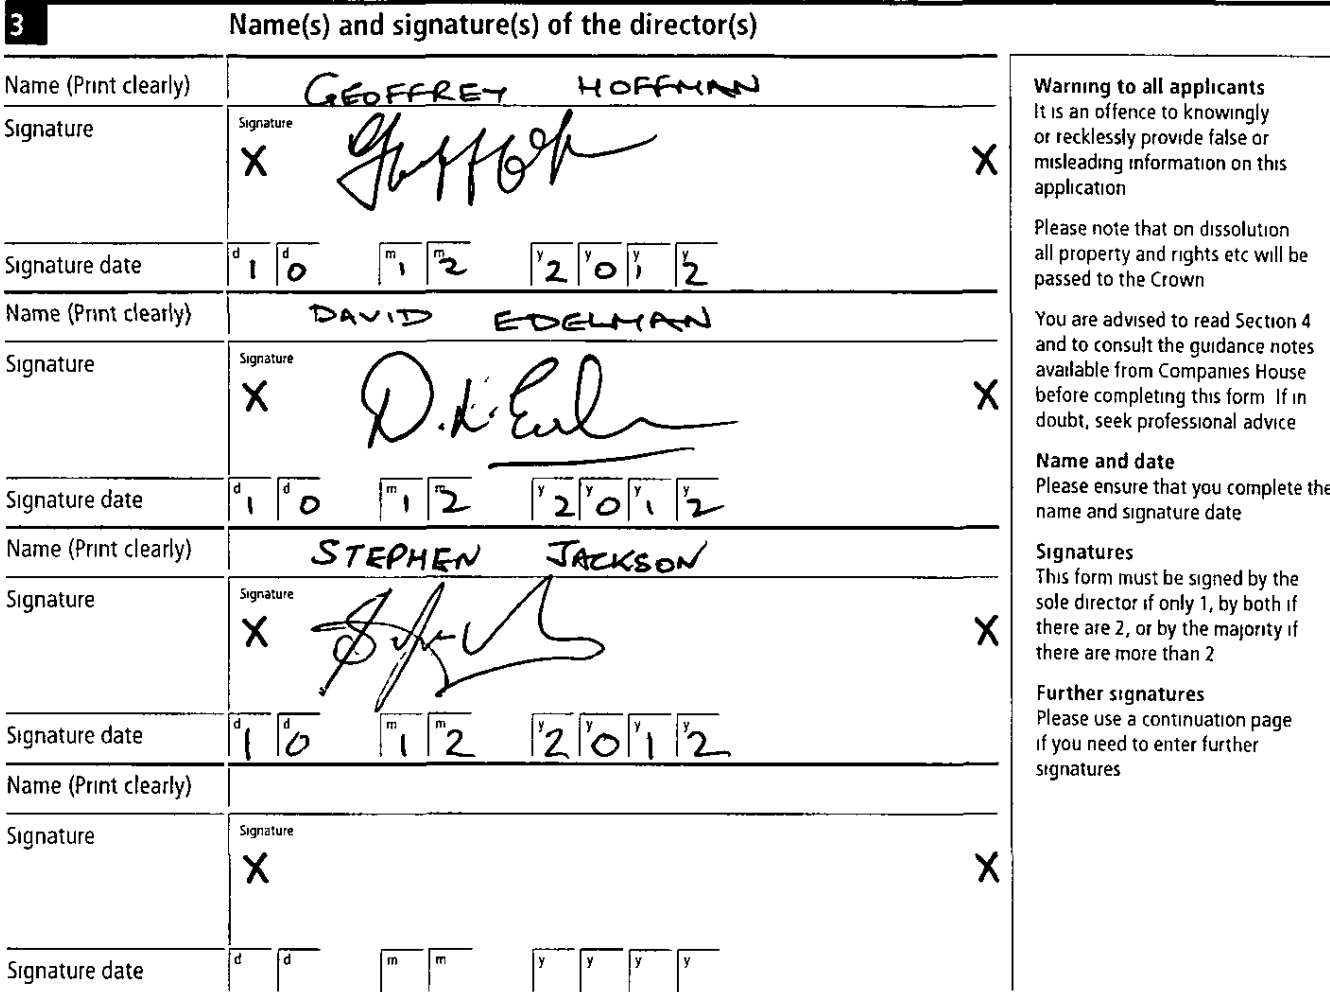 3 Name(s) and signature(s) of the director(s)
Name (Print clearly) GEOFFREY HOFFMAN
Signature Signature
X X
Signature date d 1 d 0 m 1 m 2 y 2 y 0 y 1 y 2
Name (Print clearly) DAVID EDELMAN
Signature Signature
X X
Signature date d 1 d 0 m 1 m 2 y 2 y 0 y 1 y 2
Name (Print clearly) STEPHEN JACKSON
Signature Signature
X X
Signature date d 1 d 0 m 1 m 2 y 2 y 0 y 1 y 2
Name (Print clearly)
Signature Signature
X X
Signature date d d m m y y y y
Warning to all applicants
It is an offence to knowingly
or recklessly provide false or
misleading information on this
application
Please note that on dissolution
all property and rights etc will be
passed to the Crown
You are advised to read Section 4
and to consult the guidance notes
available from Companies House
before completing this form If in
doubt, seek professional advice
Name and date
Please ensure that you complete the
name and signature date
Signatures
This form must be signed by the
sole director if only 1, by both if
there are 2, or by the majority if
there are more than 2
Further signatures
Please use a continuation page
if you need to enter further
signatures